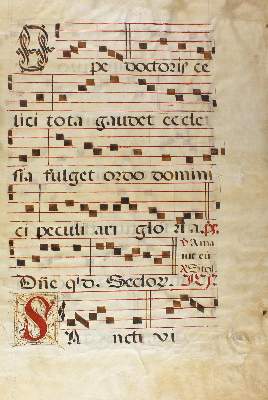 pe doctoris ce
lici tota gaudet eccle
sia fulget ordo domini
ci peculi ari glo ria. ps.
V Ama
uit eū
Dñe q̇d. Seclor.
S A ncti vi